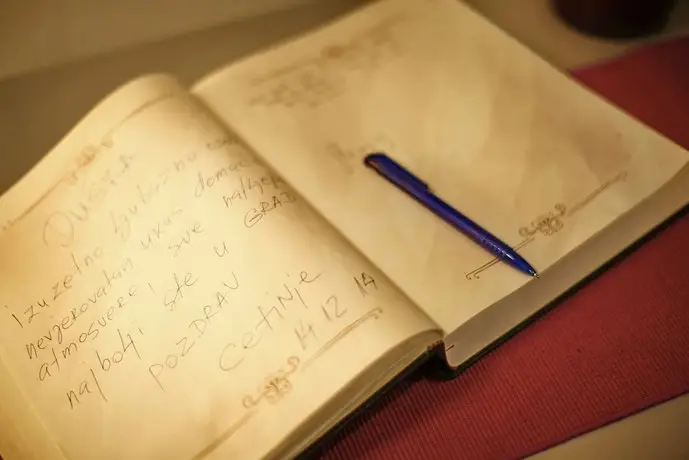 izuzetno ljubazno
nevjerovatan ukus domać
atmosvere i sve najljepše
najbolji ste u GRAD
POZDRAV
CETINJE
14 12 14